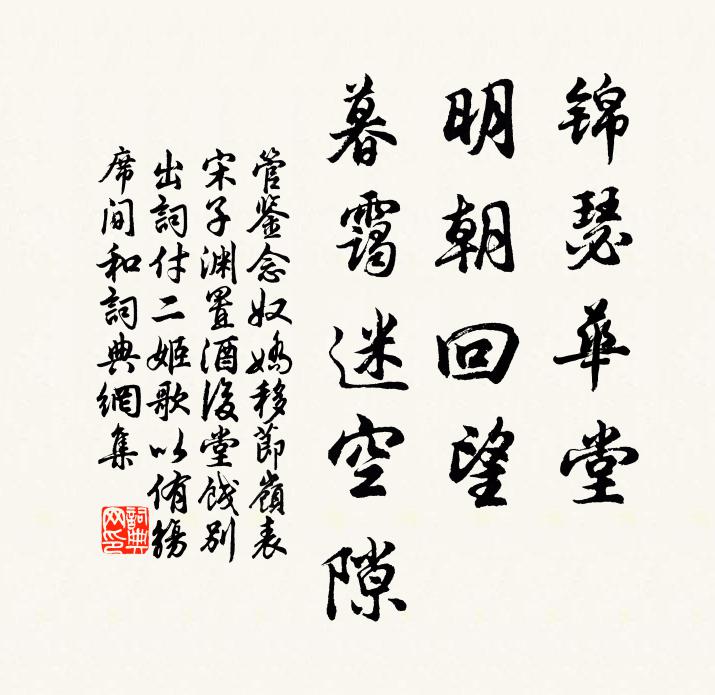 锦瑟華堂
明朝回望
暮靄迷空隙
管鉴念奴嬌移節嶺表
宋子渊置酒後堂餞别
出詞付二姬歌以侑觴
席间和詞典網集
詞典网印